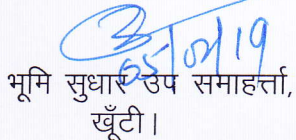 05/02/19
भूमि सुधार उप समाहर्त्ता,
खूँटी।